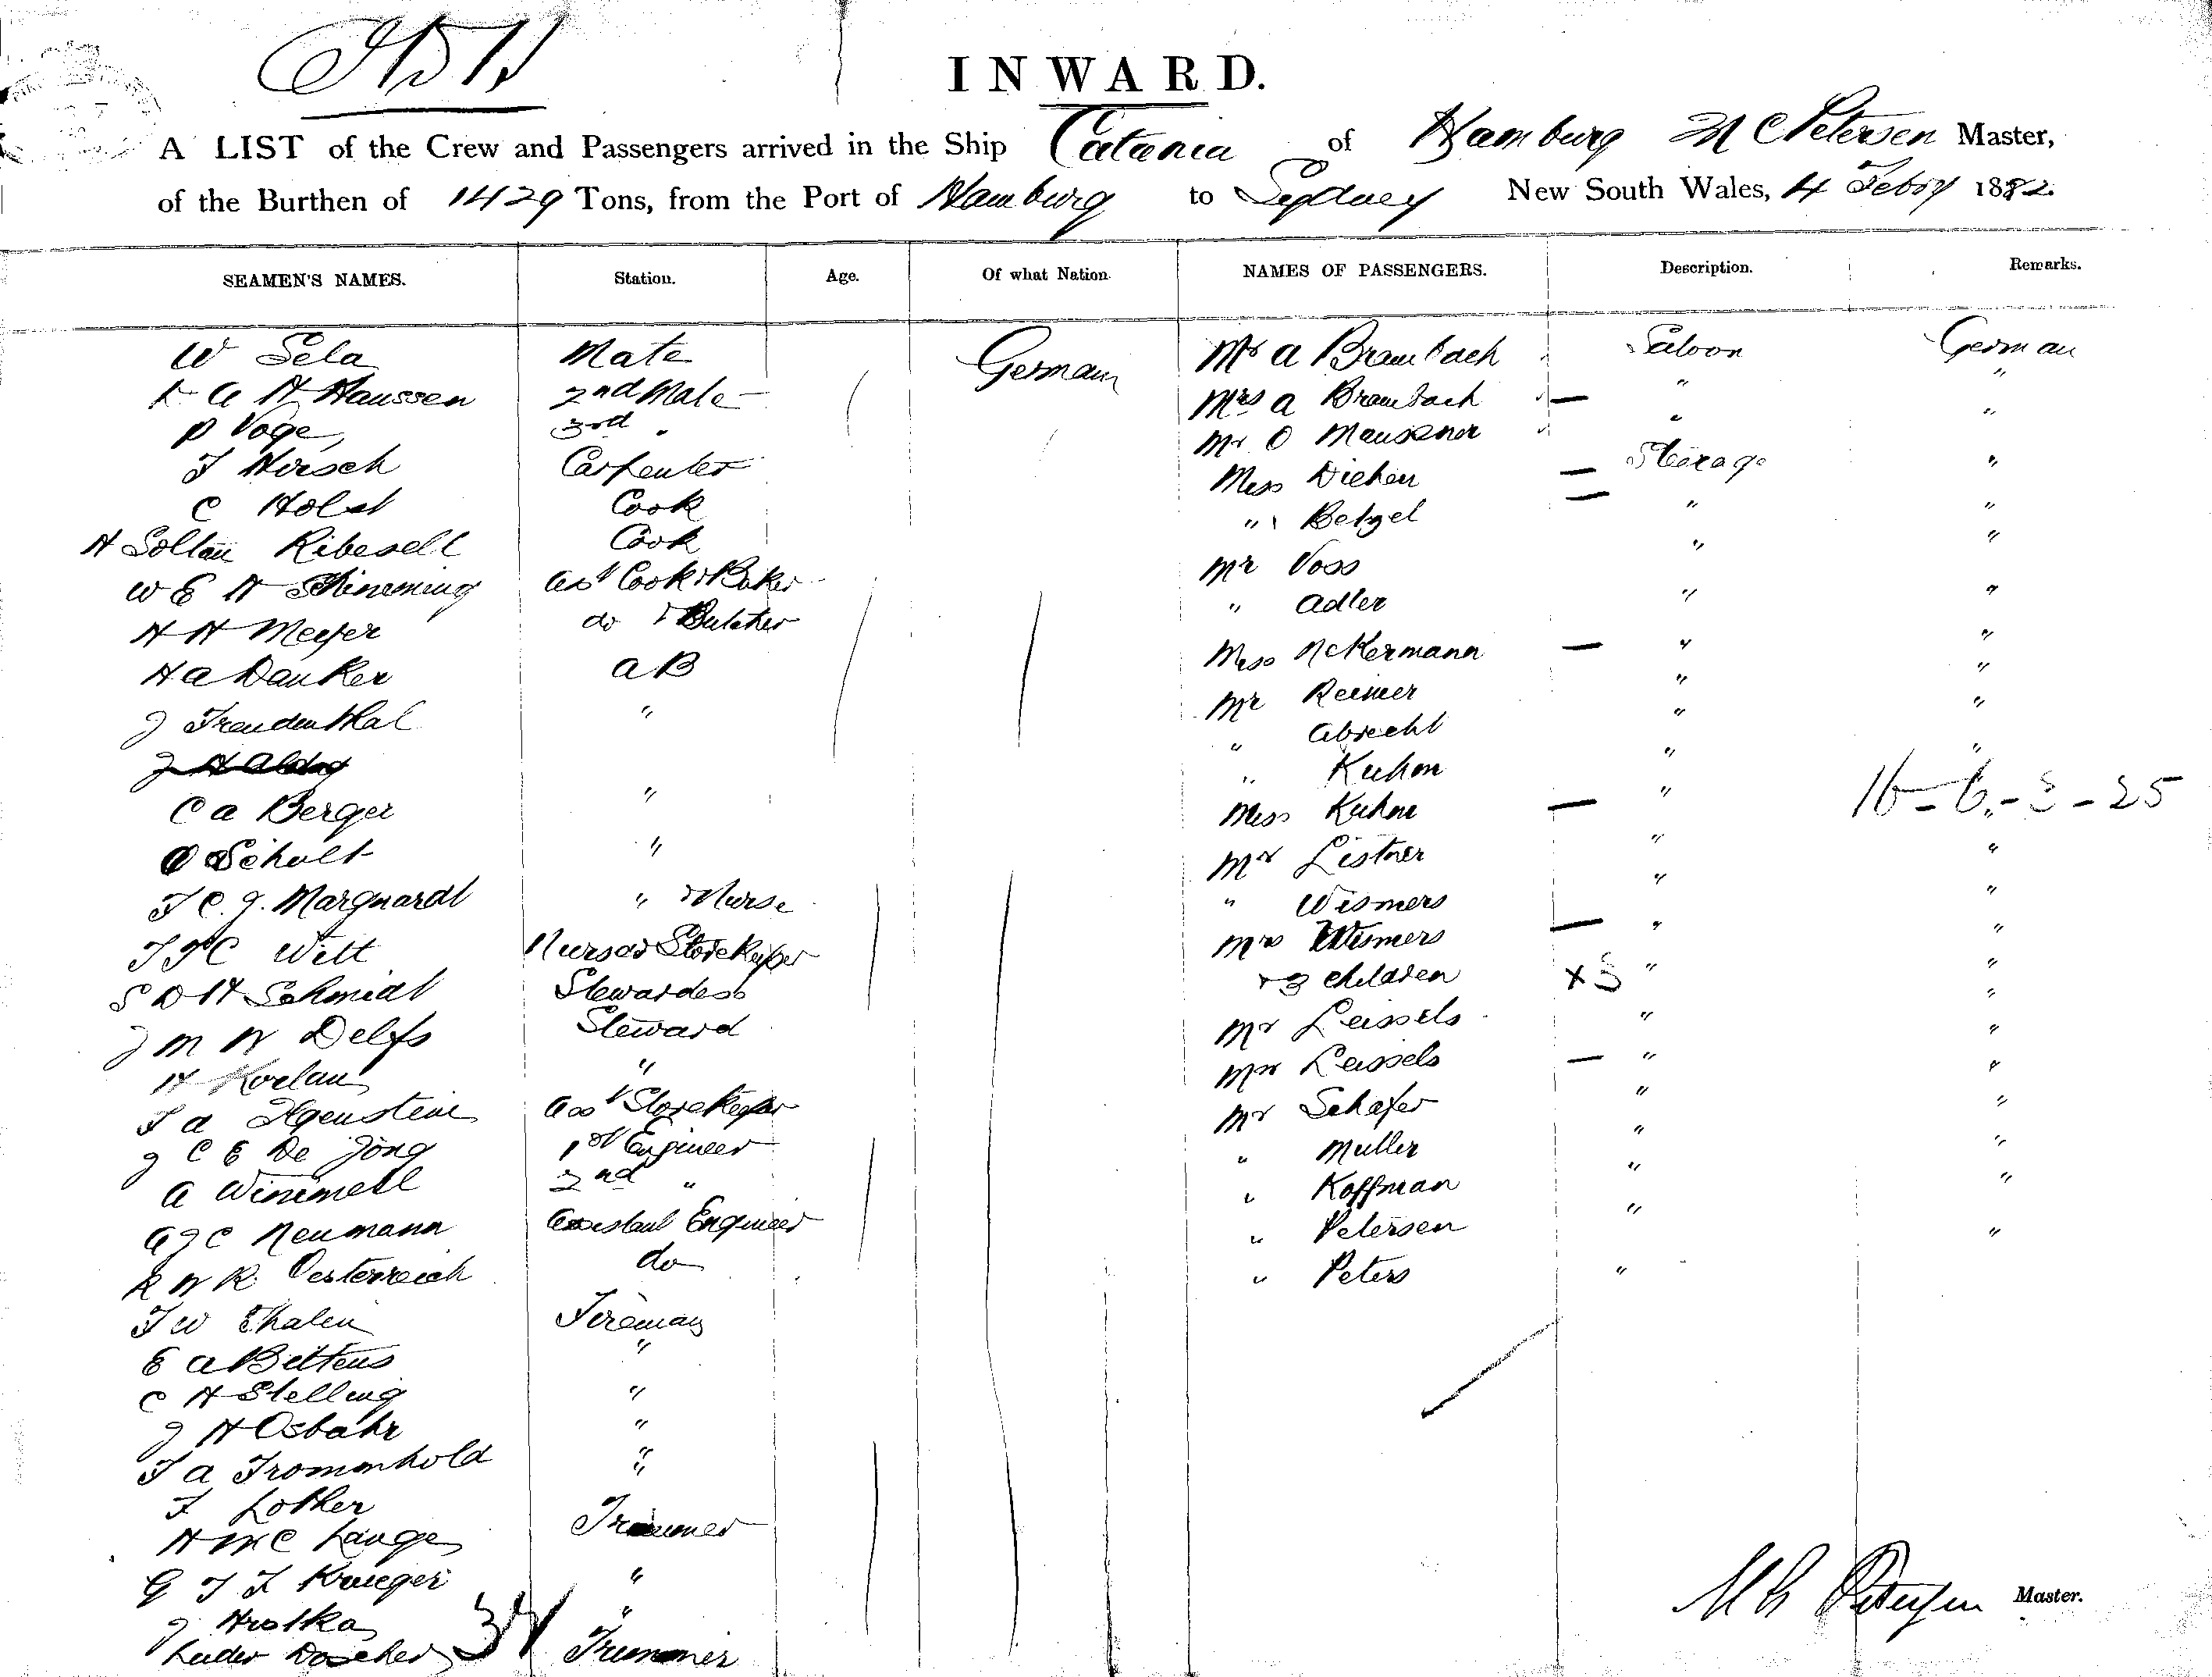 INWARD.
A LIST of the Crew and Passengers arrived in the Ship Catania of Hamburg M C Petersen Master,
of the Burthen of 1429 Tons, from the Port of Hamburg to Sydney New South Wales, 4 Febry 1882.
SEAMEN'S NAMES. Station. Age. Of what Nation. NAMES OF PASSENGERS. Description. Remarks.
W Sela Mate German Mr A Brambach Saloon German
A H Haussen 2nd Mate Mrs A Brambach — " "
P Voge 3rd " Mr O Maussner " "
J Hirsch Carpenter Miss Diehen — Steerage "
C Holst Cook " Betzel — " "
H Soltau Ribesell Cook Mr Voss " "
W E H Asst Cook & Baker " Adler " "
H H Meyer do & Butcher Miss Ackermann — " "
H A Danker AB Mr Reimer " "
J Freudenthal " " Abrecht " "
" Kuhon " "
C A Berger " Miss Kuhne — " 16-6-3-25
O Scholt " Mr Listner " "
J C J. Marquardt " & Nurse " Wismers " "
J J C Witt Nurse & Storekeeper Mrs Wismers — " "
S D H Schmidt Stewardess & 3 children x 3 " "
J M N Delfs Steward Mr Leissels " "
H Koelau " Mrs Leissels — " "
J A Ilgenstein Asst Storekeeper Mr Schafer " "
J C E De Jong 1st Engineer " Muller " "
A Wimmell 2nd " " Koffman " "
A J C Neumann Assistant Engineer " Petersen " "
R W R. Oesterreich do " Peters "
J W Thalen Fireman
E A Bittens "
C H Stelling "
J H Osbahr "
J A Frommhold "
F Lother "
H M C Lange Trimmer
G J F Krueger "
J Hrstka "
Luder Doscher 34 Trimmer
M C Petersen Master.